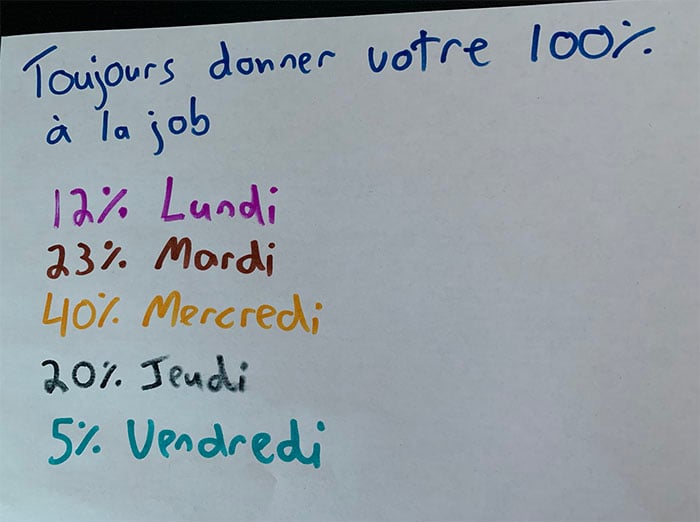 Toujours donner votre 100%
à la job
12% Lundi
23% Mardi
40% Mercredi
20% Jeudi
5% Vendredi